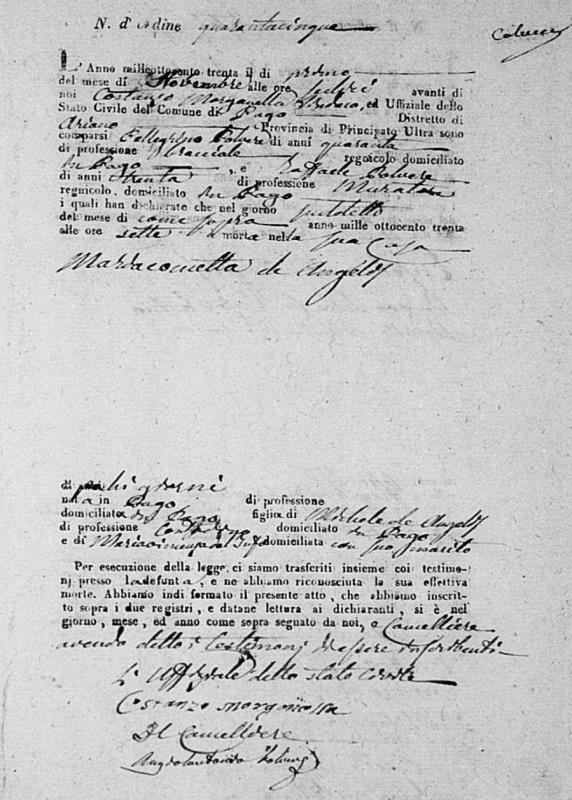 N. d'ordine quarantacinque
L'Anno milleottocento trenta il dì primo
del mese di Novembre alle ore avanti di
noi Costanzo Sindaco, ed Uffiziale dello
Stato Civile del Comune di Pago Distretto di
Ariano Provincia di Principato Ultra sono
comparsi Pellegrino Polvere di anni quaranta
di professione bracciale regnicolo domiciliato
in Pago, e Raffaele Polvere
di anni trenta di professione Muratore
regnicolo, domiciliato in Pago
i quali han dichiarato che nel giorno sudetto
del mese di come sopra anno mille ottocento trenta
alle ore sette è morta nella sua casa
de Angelis
di pochi giorni
nata in Pago di professione
domiciliata in Pago figlia di Michele de Angelis
di professione domiciliato in Pago
e di domiciliata con suo marito
Per esecuzione della legge, ci siamo trasferiti insieme coi testimo-
nj presso la defunta, e ne abbiamo riconosciuta la sua effettiva
morte. Abbiamo indi formato il presente atto, che abbiamo inscrit-
to sopra i due registri, e datane lettura ai dichiaranti, si è nel
giorno, mese, ed anno come sopra segnato da noi, e Cancelliere
avendo detto i testimonj di essere
L'Uffiziale dello stato Civile
Costanzo
Il Cancelliere